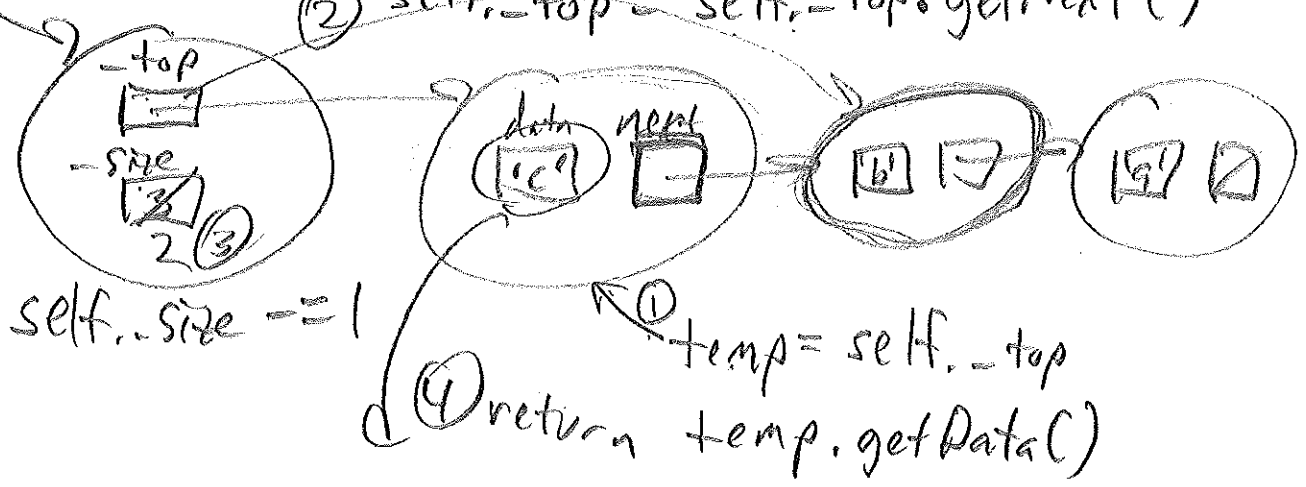 ② self._top = self._top.getNext()
_top
data next
'c'
'b'
'a'
_size
3
2 ③
self._size -= 1
① temp = self._top
④ return temp.getData()